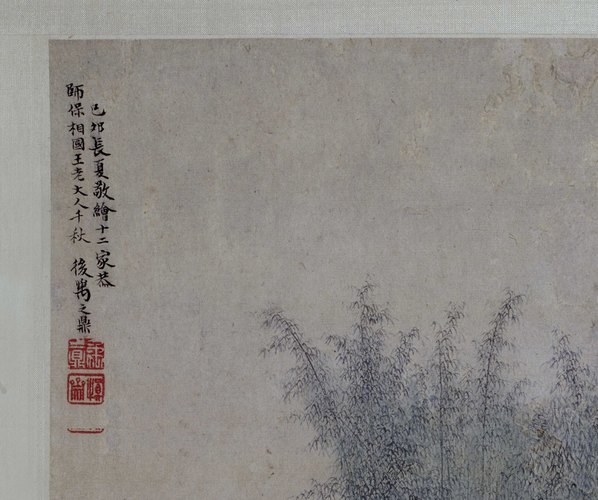 己卯長夏敬繪十二家恭
師保相國王老大人千秋 後禹之鼎